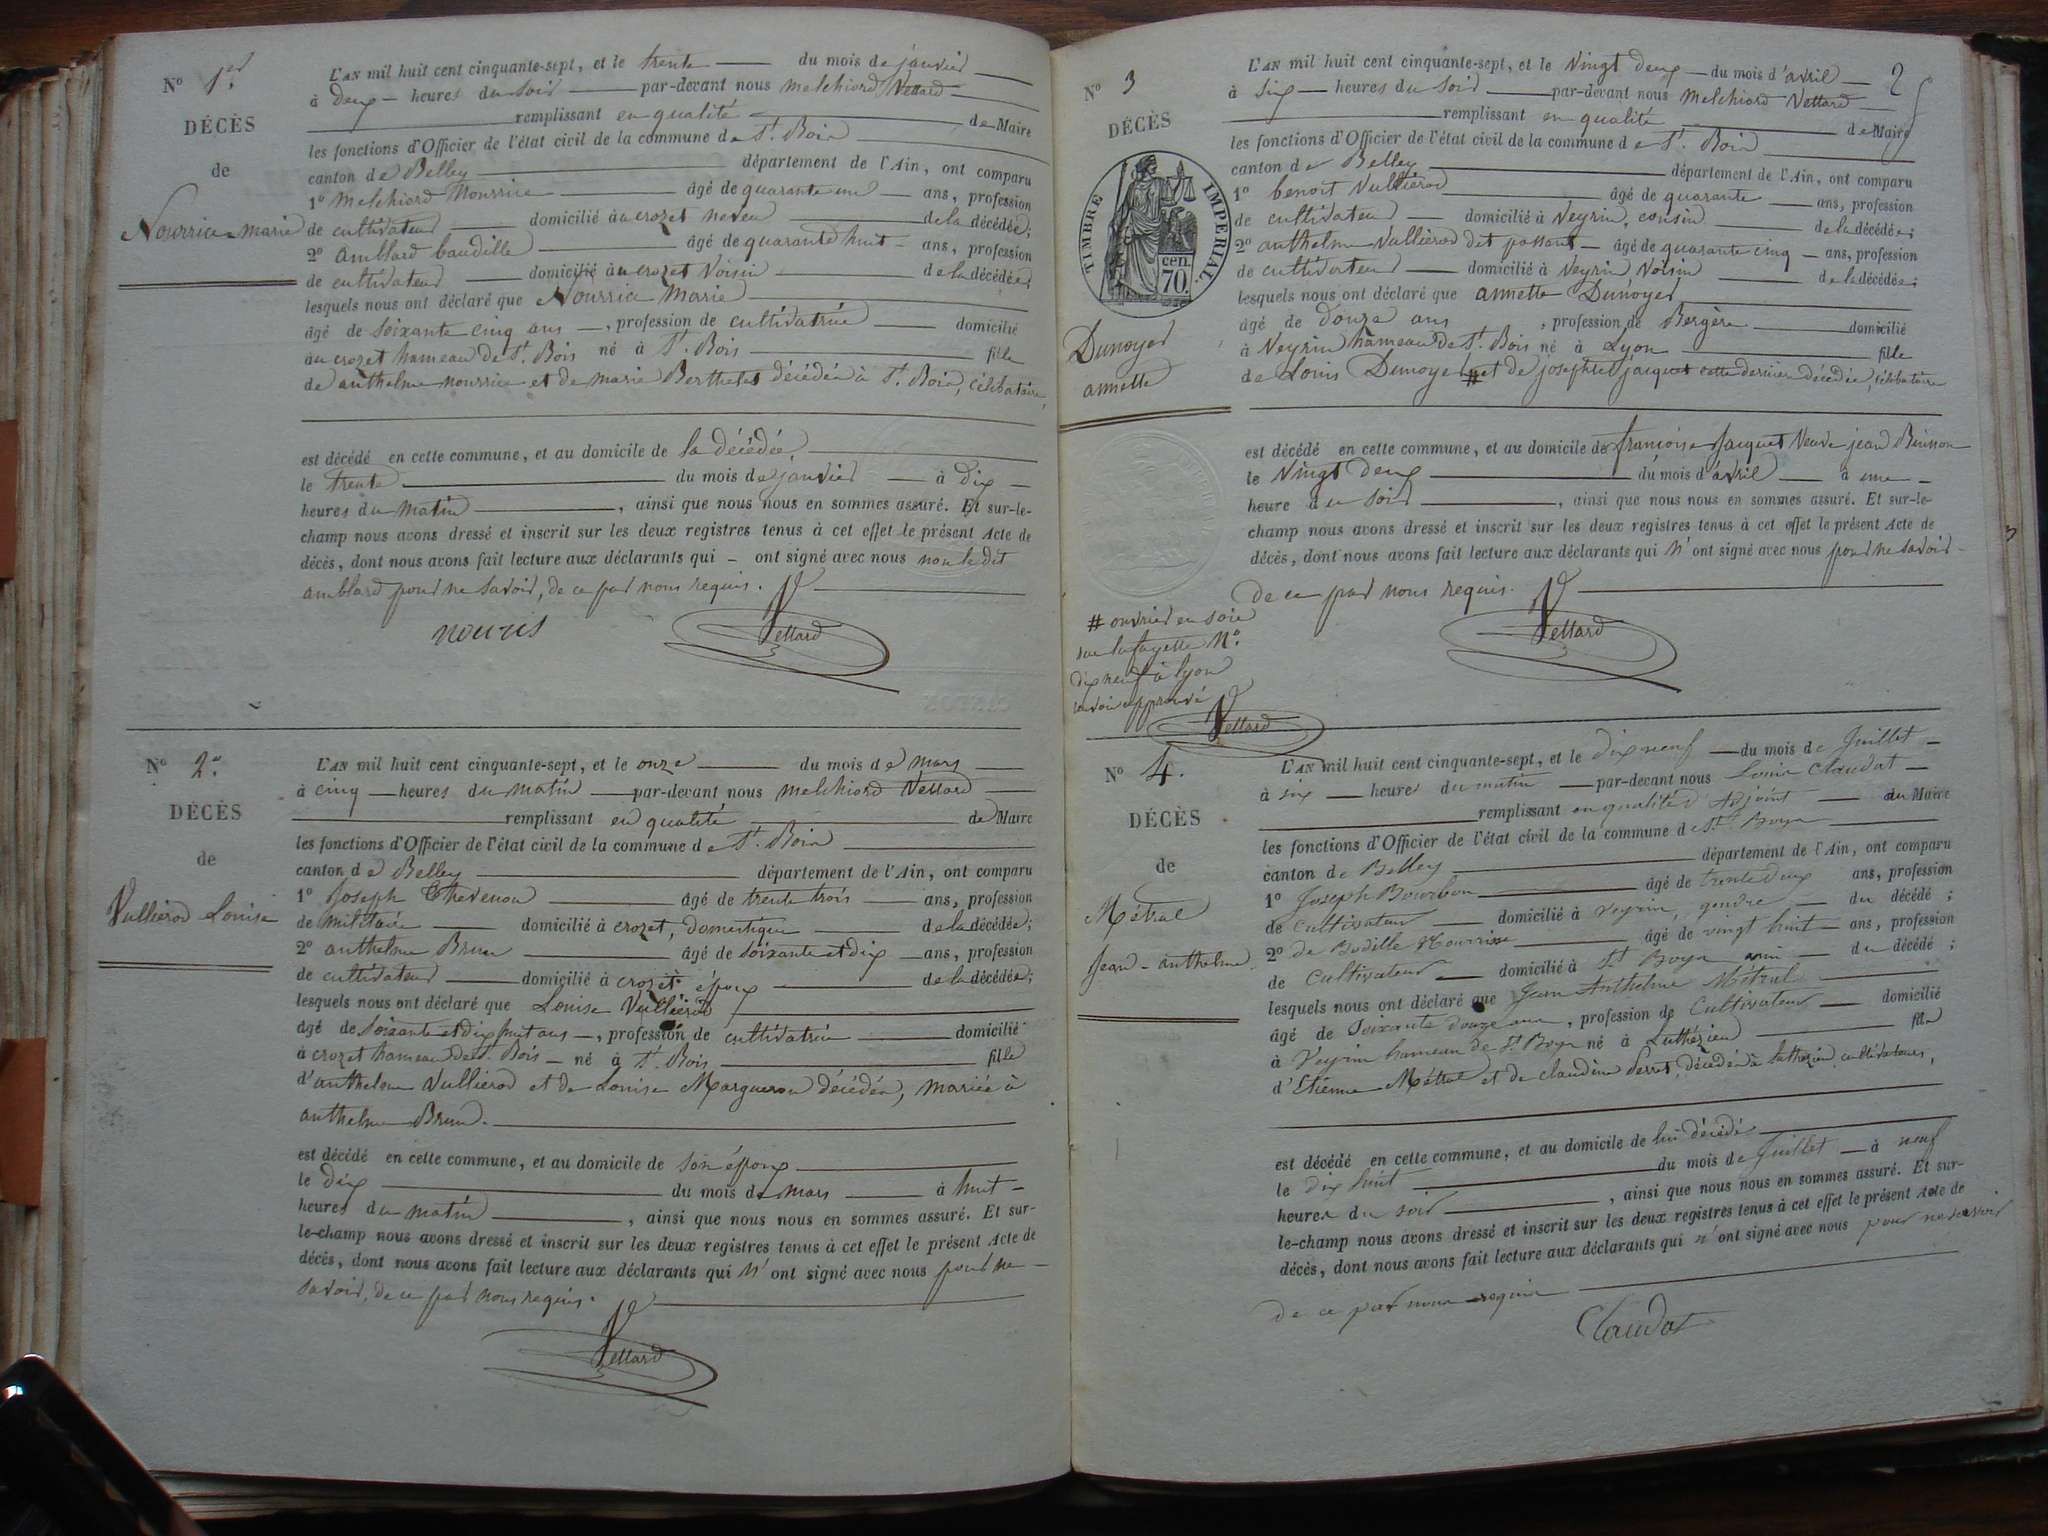 N° 1er
DÉCÈS
de
Nourrice Marie
L'AN mil huit cent cinquante-sept, et le trente du mois de janvier
à deux heures du soir par-devant nous melchiord Vettard
remplissant en qualité de Maire
les fonctions d'Officier de l'état civil de la commune de St. Bois
canton de Belley département de l'Ain, ont comparu
1° melchiord Nourrice âgé de quarante un ans, profession
de cultivateur domicilié àu crozet neveu de la décédée;
2° amblard baudille âgé de quarante huit ans, profession
de cultivateur domicilié àu crozet Voisin de la décédée;
lesquels nous ont déclaré que Nourrice Marie
âgé de soixante cinq ans, profession de cultivatrice domicilié
àu crozet hameau de St. Bois né à St. Bois fille
de anthelme nourrice et de marie Berthelet décédés à St. Bois, célibataire,
est décédé en cette commune, et au domicile de la décédée,
le trente du mois de janvier à dix
heures du matin, ainsi que nous nous en sommes assuré. Et sur-le-
champ nous avons dressé et inscrit sur les deux registres tenus à cet effet le présent Acte de
décès, dont nous avons fait lecture aux déclarants qui ont signé avec nous non le dit
amblard pour ne savoir, de ce par nous requis.
nouris Vettard
N° 2e
DÉCÈS
de
Vulliérod Louise
L'AN mil huit cent cinquante-sept, et le onze du mois de mars
à cinq heures du matin par-devant nous melchiord Vettard
remplissant en qualité de Maire
les fonctions d'Officier de l'état civil de la commune de St. Bois
canton de Belley département de l'Ain, ont comparu
1° Joseph Thevenon âgé de trente trois ans, profession
de militaire domicilié à crozet, domestique de la décédée;
2° anthelme Brun âgé de soixante et dix ans, profession
de cultivateur domicilié à crozet époux de la décédée;
lesquels nous ont déclaré que Louise Vulliérod
âgé de soixante et dix huit ans, profession de cultivatrice domicilié
à crozet hameau de St. Bois né à St. Bois fille
d'anthelme Vulliérod et de Louise Marguerou décédés, mariée à
anthelme Brun.
est décédé en cette commune, et au domicile de son époux
le dix du mois de mars à huit
heures du matin, ainsi que nous nous en sommes assuré. Et sur-
le-champ nous avons dressé et inscrit sur les deux registres tenus à cet effet le présent Acte de
décès, dont nous avons fait lecture aux déclarants qui n'ont signé avec nous pour ne
savoir, de ce par nous requis.
Vettard
2
N° 3
DÉCÈS
TIMBRE IMPERIAL.
cen.
70.
Dunoyer
annette
L'AN mil huit cent cinquante-sept, et le vingt deux du mois d'avril
à six heures du soir par-devant nous melchiord Vettard
remplissant en qualité de Maire
les fonctions d'Officier de l'état civil de la commune de St. Bois
canton de Belley département de l'Ain, ont comparu
1° benoit Vulliérod âgé de quarante ans, profession
de cultivateur domicilié à Veyrin, cousin de la décédée;
2° anthelme Vulliérod dit passant âgé de quarante cinq ans, profession
de cultivateur domicilié à Veyrin Voisin de la décédée;
lesquels nous ont déclaré que annette Dunoyer
âgé de douze ans, profession de Bergère domicilié
à Veyrin hameau de St. Bois né à Lyon fille
de Louis Dunoyer # et de josephte jacquet cette dernière décédée, célibataire
est décédé en cette commune, et au domicile de françoise Jacquet Veuve jean Buisson
le vingt deux du mois d'avril à une
heure du soir, ainsi que nous nous en sommes assuré. Et sur-le-
champ nous avons dressé et inscrit sur les deux registres tenus à cet effet le présent Acte de
décès, dont nous avons fait lecture aux déclarants qui n'ont signé avec nous pour ne savoir
de ce par nous requis.
Vettard
# ouvrier en soie
rue lafayette N°.
dix neuf à lyon
renvoi approuvé
Vettard
N° 4.
DÉCÈS
de
Métral
Jean-anthelme
L'AN mil huit cent cinquante-sept, et le dix neuf du mois de Juillet
à six heures du matin par-devant nous Louis Claudat
remplissant en qualité d'Adjoint au Maire
les fonctions d'Officier de l'état civil de la commune de St. Boys
canton de Belley département de l'Ain, ont comparu
1° Joseph Bourbon âgé de trente deux ans, profession
de cultivateur domicilié à Veyrin, gendre du décédé;
2° de Bodille Nourrisse âgé de vingt huit ans, profession
de Cultivateur domicilié à St Boys ami du décédé;
lesquels nous ont déclaré que Jean Anthelme Métral
âgé de Soixante douze ans, profession de Cultivateur domicilié
à Veyrin hameau de St. Boys né à Luthézieu fils
d'Etienne Métral et de claudine Serret, décédés à luthézieu cultivateurs,
est décédé en cette commune, et au domicile de lui décédé
le dix huit du mois de Juillet à neuf
heures du soir, ainsi que nous nous en sommes assuré. Et sur-
le-champ nous avons dressé et inscrit sur les deux registres tenus à cet effet le présent Acte de
décès, dont nous avons fait lecture aux déclarants qui n'ont signé avec nous pour ne savoir
de ce par nous requis
Claudat